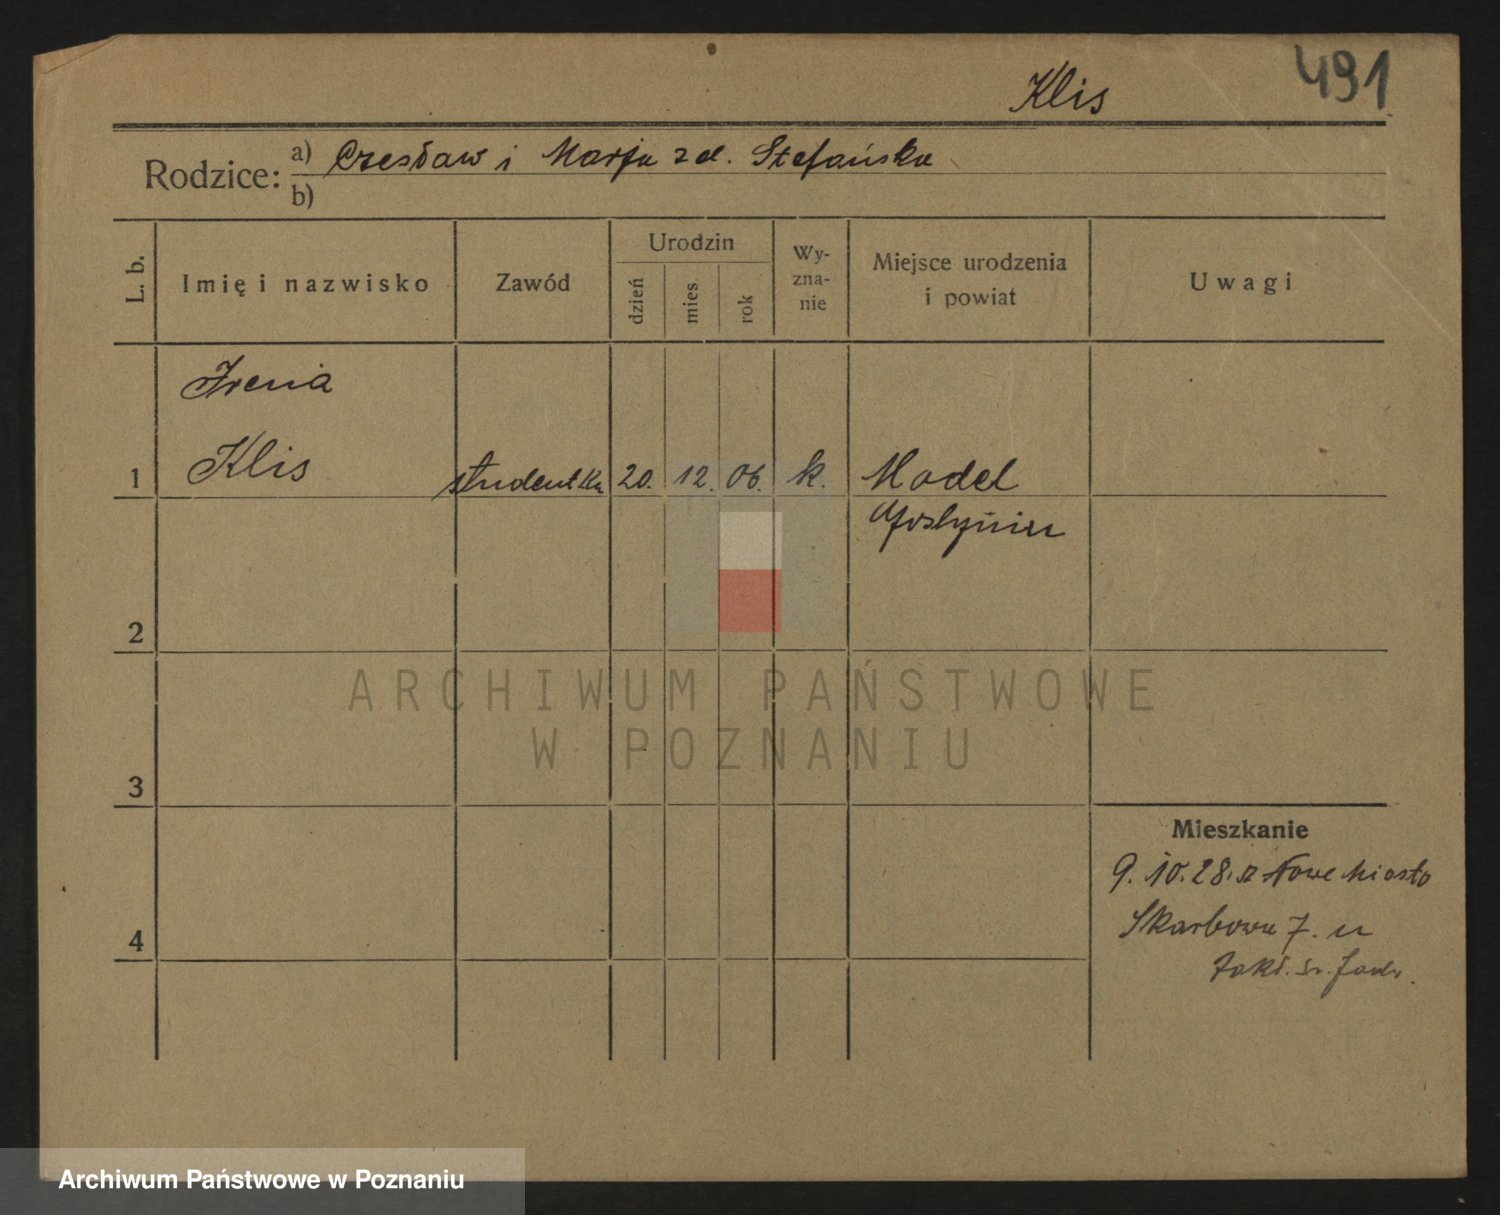 491
Klis
Rodzice: a) Czesław i Marja z d. Stefańska
b)
L. b.
Imię i nazwisko
Zawód
Urodzin
dzień
mies.
rok
Wy-
zna-
nie
Miejsce urodzenia
i powiat
Uwagi
Irena
1 Klis studentka 20. 12. 06. k. Model
2
3
4
Mieszkanie
9. 10. 28. z Nowe Miasto
Skarbowa 7. u
ARCHIWUM PAŃSTWOWE
W POZNANIU
Archiwum Państwowe w Poznaniu